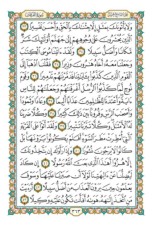 وَلَا يَأْتُونَكَ بِمَثَلٍ إِلَّا جِئْنَٰكَ بِٱلْحَقِّ وَأَحْسَنَ تَفْسِيرًا
ٱلَّذِينَ يُحْشَرُونَ عَلَىٰ وُجُوهِهِمْ إِلَىٰ جَهَنَّمَ أُو۟لَٰٓئِكَ شَرٌّ
مَّكَانًا وَأَضَلُّ سَبِيلًا وَلَقَدْ ءَاتَيْنَا مُوسَى ٱلْكِتَٰبَ
وَجَعَلْنَا مَعَهُۥٓ أَخَاهُ هَٰرُونَ وَزِيرًا فَقُلْنَا ٱذْهَبَآ إِلَى
ٱلْقَوْمِ ٱلَّذِينَ كَذَّبُوا۟ بِـَٔايَٰتِنَا فَدَمَّرْنَٰهُمْ تَدْمِيرًا وَقَوْمَ
نُوحٍ لَّمَّا كَذَّبُوا۟ ٱلرُّسُلَ أَغْرَقْنَٰهُمْ وَجَعَلْنَٰهُمْ لِلنَّاسِ
ءَايَةً وَأَعْتَدْنَا لِلظَّٰلِمِينَ عَذَابًا أَلِيمًا وَعَادًا وَثَمُودَا۟
وَأَصْحَٰبَ ٱلرَّسِّ وَقُرُونًۢا بَيْنَ ذَٰلِكَ كَثِيرًا وَكُلًّا ضَرَبْنَا
لَهُ ٱلْأَمْثَٰلَ وَكُلًّا تَبَّرْنَا تَتْبِيرًا وَلَقَدْ أَتَوْا۟ عَلَى ٱلْقَرْيَةِ
ٱلَّتِىٓ أُمْطِرَتْ مَطَرَ ٱلسَّوْءِ أَفَلَمْ يَكُونُوا۟ يَرَوْنَهَا بَلْ كَانُوا۟
لَا يَرْجُونَ نُشُورًا وَإِذَا رَأَوْكَ إِن يَتَّخِذُونَكَ إِلَّا
هُزُوًا أَهَٰذَا ٱلَّذِى بَعَثَ ٱللَّهُ رَسُولًا إِن كَادَ
لَيُضِلُّنَا عَنْ ءَالِهَتِنَا لَوْلَآ أَن صَبَرْنَا عَلَيْهَا وَسَوْفَ
يَعْلَمُونَ حِينَ يَرَوْنَ ٱلْعَذَابَ مَنْ أَضَلُّ سَبِيلًا
أَرَءَيْتَ مَنِ ٱتَّخَذَ إِلَٰهَهُۥ هَوَىٰهُ أَفَأَنتَ تَكُونُ عَلَيْهِ وَكِيلًا
٣٦٣